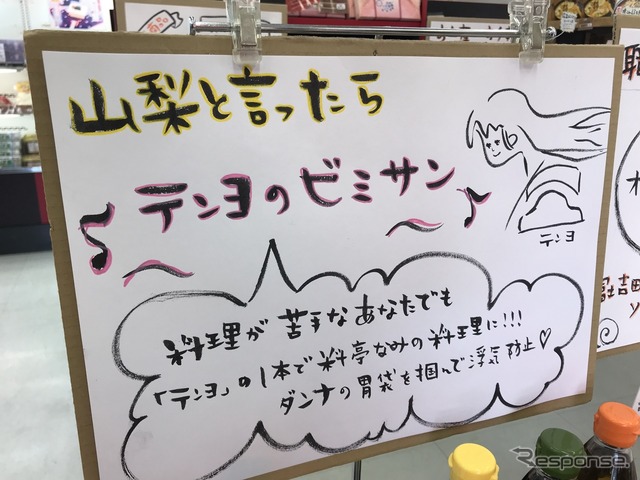 山梨と言ったら
テンヨのビミサン
テンヨ
料理が苦手なあなたでも
「テンヨ」の1本で料亭なみの料理に!!!
ダンナの胃袋を掴んで浮気防止♡
富士吉田
Response.